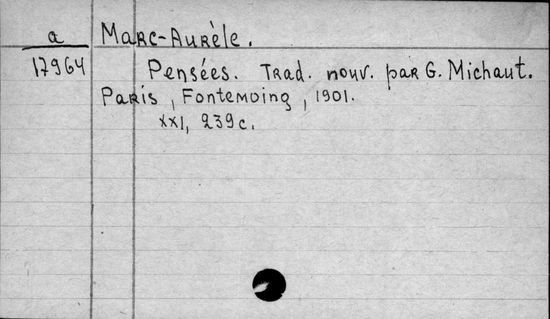 a Marc-Aurèle.
17964 Pensées. Trad. nouv. par G. Michaut.
Paris, Fontemoing, 1901.
XXI, 239 c.